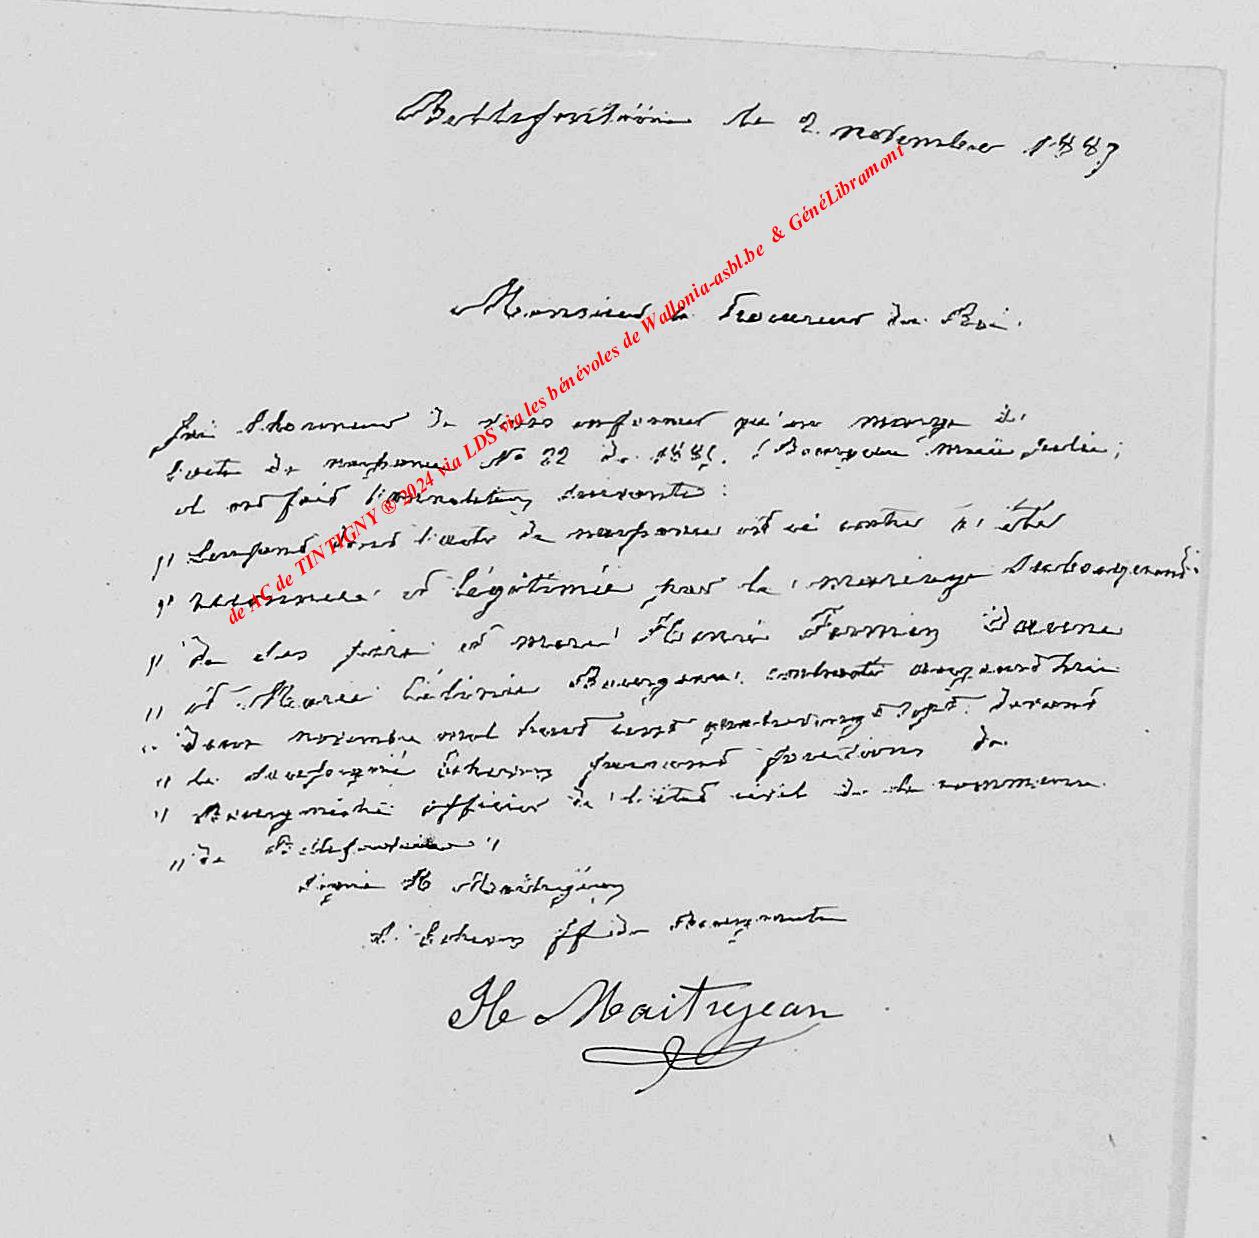 Bellefontaine le 2 novembre 1887
Monsieur le Procureur du Roi.
J'ai l'honneur de vous informer qu'en marge de
l'acte de naissance No 22 de 188 (Bourgeau Marie Julie)
il est fait l'annotation suivante :
" L'enfant dont l'acte de naissance est ci contre a été
" reconnue et légitimée par le mariage subséquent
" de ses père et mère Henri Firmin
" et Marie Célinie contracté aujourd'hui
" deux novembre mil huit cent quatrevingt sept devant
" le soussigné Echevin faisant fonctions de
" Bourgmestre officier de l'état civil de la commune
" de Bellefontaine "
signé H Maitrejean
L'Echevin ff de Bourgmestre
H Maitrejean
de AC de TINTIGNY ® 2024 via LDS via les bénévoles de Wallonia-asbl.be & GénéLibramont